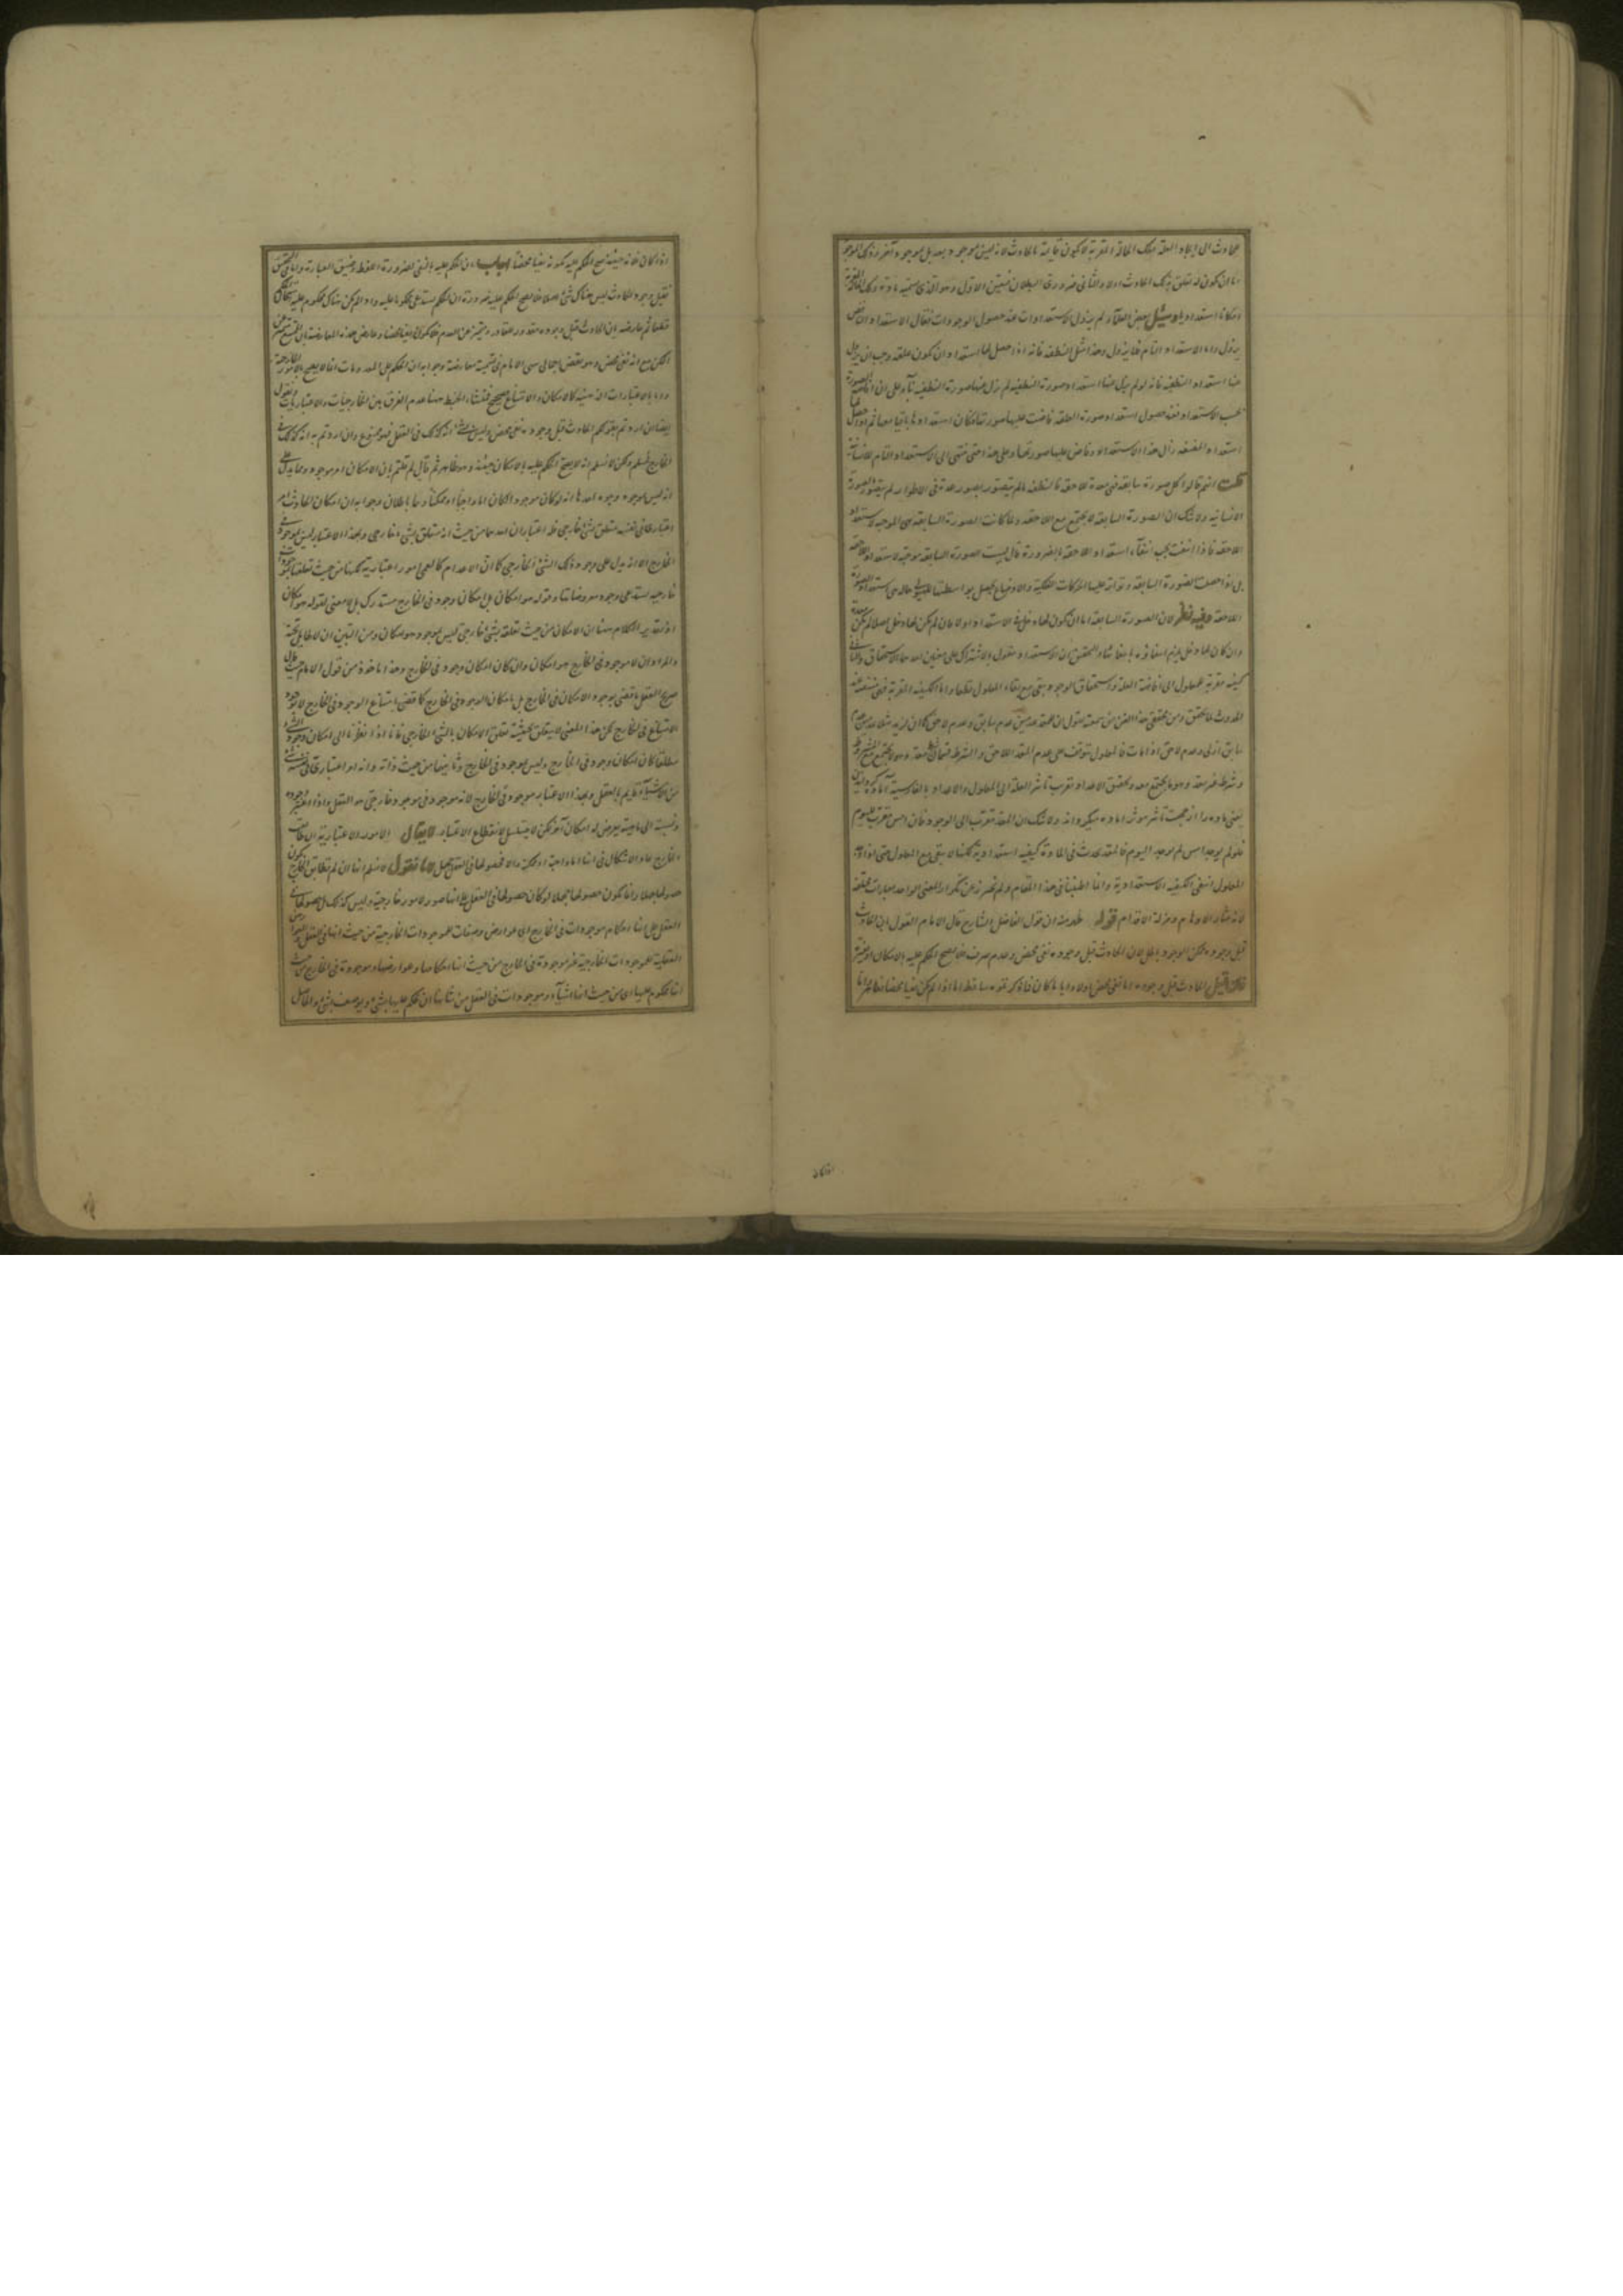 للحادث الى ايجاد العلة فتلك الحالة المقربة لا يكون قائمة بالحادث لانه ليس موجود بعد بل بموجود آخر وذلك الموجود
اما ان يكون له تعلق بذلك الحادث اولا والثانى ضرورى البطلان فتعين الاول وهو الذى سميته مادة وتلك الحالة المقربة
امكانا استعداديا وسئل بعض العلماء لم يزول الاستعدادات عند حصول الوجودات فقال الاستعداد الناقص
يزول واما الاستعداد التام فلا يزول وهذا مثل النطفة فانه اذا حصل لها استعداد ان يكون علقة وجب ان يزول
عنها استعداد النطفية فانه لو لم يزل عنها استعداد صورة النطفية لم يزل عنها صورة النطفية بناء على ان افاضة الصورة
بحسب الاستعداد فعند حصول استعداد صورة العلقة فاضت عليها صورتها فكان استعدادها باقيا معها ثم اذا حصل لها
استعداد المضغة زال هذا الاستعداد وفاض عليها صورتها وعلى هذا حتى ينتهى الى الاستعداد التام للانسانية
قلت انتم قالوا كل صورة سابقة فهى معدة للاحقة فالنطفة ما لم يتصور بصور عدة فى الاطوار لم يتصور بالصورة
الانسانية ولا شك ان الصورة السابقة لا يجتمع مع اللاحقة ولما كانت الصورة السابقة هى الموجبة لاستعداد
اللاحقة فاذا انتفت يجب انتفاء استعداد اللاحقة بالضرورة قال ليست الصورة السابقة موجبة لاستعداد اللاحقة
بل اذا حصلت الصورة السابقة وتوارد عليها الحركات الفلكية والاوضاع يحصل بواسطتها للهيولى حالة هى استعداد الصورة
اللاحقة وفيه نظر لان الصورة السابقة اما ان يكون لها دخل فى الاستعداد اولا فان لم يكن لها دخل اصلا لم يكن معدة
وان كان لها دخل يلزم انتفاؤه بانتفائها والتحقيق ان الاستعداد مقول بالاشتراك على معنيين احدهما الاستحقاق والثانى
كيفية مقربة للمعلول الى افاضة العلة واستحقاق الوجود يبقى مع بقاء المعلول قطعا واما الكيفية المقربة فهى منتفية عند
الحدوث لما تحقق ومن محققى هذا الفن من سمعته يقول ان للمعد عدمين عدم سابق وعدم لاحق كما ان لزيد مثلا عدمين عدم
سابق ازلى وعدم لاحق اذا مات فالمعلول يتوقف على عدم المعد اللاحق والشرط قسمان شرط معد وهو لا يجتمع مع المشروط
وشرط غير معد وهو ما يجتمع معه وتحقيق الاعداد تقريب تأثير العلة الى المعلول والاعداد بالفارسية آماده كردانيدن
يعنى ماده را از جهت تأثير مؤثر اماده ميكرداند ولا شك ان المعد مقرب الى الوجود فان امس مقرب لليوم
فلو لم يوجد امس لم يوجد اليوم فالمعد يحدث فى المادة كيفية استعدادية لكنها لا تبقى مع المعلول حتى اذا وجد
المعلول انتفى الكيفية الاستعدادية وانما اطنبنا فى هذا المقام ولم نحترز عن تكرار المعنى الواحد بعبارات مختلفة
لانه مثار الاوهام ومزلة الاقدام قوله علم منه ان قول الفاضل الشارح قال الامام القول بان الحادث
قبل وجوده ممكن الوجود باطل لان الحادث قبل وجوده نفى محض وعدم صرف فلا يصح الحكم عليه بالامكان او غيره
فان قيل الحادث قبل وجوده اما نفى محض اولا وايا ما كان فما ذكرتموه ساقط اما اذا لم يكن نفيا محضا فظاهر واما
اذا كان فلانه حينئذ يصح الحكم عليه بكونه نفيا محضا اجاب بان الحكم عليه بالنفى لضرورة اللفظ وضيق العبارة واما فى التحقيق
فقبل وجود الحادث ليس هناك شئ اصلا فلا يصح الحكم عليه ضرورة ان الحكم يستدعى محكوما عليه واذ لم يكن هناك محكوم عليه استحال
قطعا ثم عارضه بان الحادث قبل وجوده مقدور للقادر ومتميز عن العدم فلا يكون نفيا محضا وعارض هذه المعارضة بان الممتنع متميز عن
الممكن مع انه نفى محض وهو نقض اجمالى سمى الامام فى تسميته معارضة وجوابه ان الحكم على المعدومات انما لا يصح بالامور الخارجية
واما بالاعتبارات الذهنية كالامكان والامتناع فصحيح فمنشاء الخبط هنا عدم الفرق بين الخارجيات والاعتباريات ونقول
ايضا ان اردتم بقولكم الحادث قبل وجوده نفى محض وليس بشئ انه كذلك فى العقل فهو ممنوع وان اردتم به انه كذلك فى
الخارج فمسلم ولكن لا نسلم انه لا يصح الحكم عليه بالامكان حينئذ وهو ظاهر ثم قال لم قلتم بان الامكان امر موجود ومما يدل على
انه ليس بموجود وجوه احدها انه لو كان موجودا لكان اما واجبا او ممكنا وهما باطلان وجوابه ان امكان الحادث امر
اعتبارى فى نفسه متعلق بشئ خارجى فله اعتباران احدهما من حيث انه متعلق بشئ خارجى وبهذا الاعتبار ليس بموجود فى
الخارج الا انه يدل على وجود ذلك الشئ الخارجى كما ان الاعدام كالعمى امور اعتبارية لكنها من حيث تعلقها بموجودات
خارجية يستدعى وجود معروضاتها وقوله هو امكان بل امكان وجود فى الخارج مستدرك بل لا معنى لقوله هو امكان
اذ تقدير الكلام هنا ان الامكان من حيث تعلقه بشئ خارجى ليس بموجود هو امكان ومن البين ان لا طائل تحته
والمراد ان لا موجود فى الخارج هو امكان وان كان امكان وجود فى الخارج وهذا ماخوذ من قول الامام حيث قال
صريح العقل ما قضى بوجود الامكان فى الخارج بل بامكان الوجود فى الخارج كما قضى بامتناع الوجود فى الخارج لا بوجود
الامتناع فى الخارج لكن هذا المعنى لا يتعلق بحيثية تعلق الامكان بالشئ الخارجى فانا اذا نظرنا الى امكان وجود الشئ
مطلقا كان امكان وجود فى الخارج وليس بموجود فى الخارج وثانيهما من حيث ذاته وانه امر اعتبارى فى نفسه شئ
من الاشياء قايم بالعقل وبهذا الاعتبار موجود فى الخارج لانه موجود فى موجود خارجى هو العقل واذا اعتبر وجوده
ونسبته الى ماهيته يعرض له امكان آخر لكن لا يتسلسل لانقطاع الاعتبار لا يقال الامور الاعتبارية ان طابقت
الخارج عاد الاشكال فى انها اما واجبة او ممكنة والا فحصولها فى العقل جهل لانا نقول لا نسلم انها ان لم تطابق الخارج يكون
حصولها جهلا وانما يكون حصولها جهلا لو كان حصولها فى العقل على انها صور لامور خارجية وليس كذلك بل حصولها فى
العقل على انها احكام موجودات فى الخارج اى عوارض وصفات للموجودات الخارجية من حيث انها فى العقل والعوارض
العقلية للموجودات الخارجية غير موجودة فى الخارج من حيث انها احكامها وعوارضها وموجودة فى الخارج من حيث
انها محكوم عليها اى من حيث انها اشياء وموجودات فى العقل من شانها ان يحكم عليها بشئ ويوصف بشئ والحاصل
اذا كان